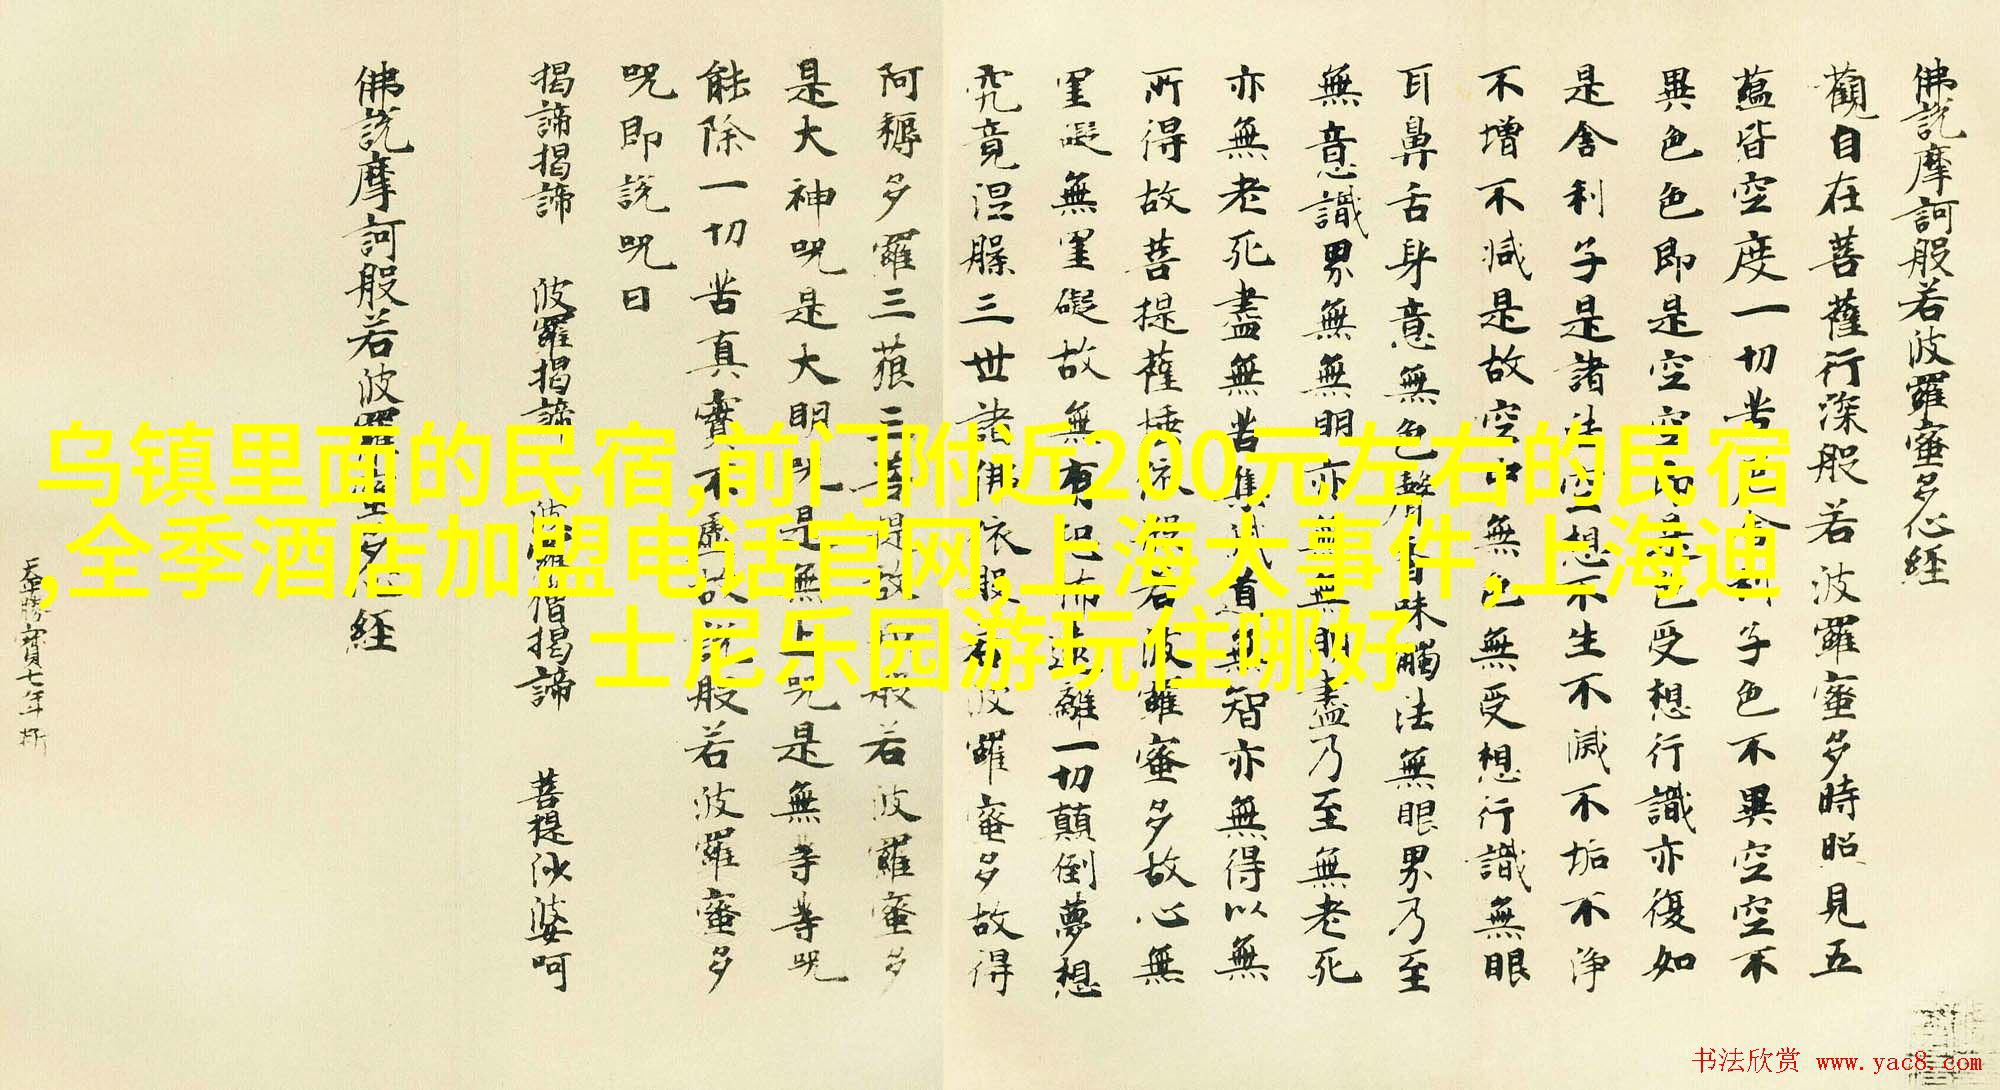 佛說摩訶般若波羅蜜多心経
觀自在菩薩行深般若波羅蜜多時照見五
蘊皆空度一切苦厄舍利子色不異空空不
異色色即是空空即是色受想行識亦復如
是舍利子是諸法空想不生不滅不垢不淨
不增不減是故空中無色無受想行識無眼
耳鼻舌身意無色聲香味觸法無眼界乃至
無意識界無無明亦無無明盡乃至無老死
亦無老死盡無苦集滅道無智亦無得以無
所得故菩提薩埵依般若波羅蜜多故心無
罣礙無罣礙故無有恐怖遠離一切顛倒夢想
究竟涅槃三世諸佛依般若波羅蜜多故得
阿耨多羅三藐三菩提故知般若波羅蜜多
是大神呪是大明呪是無上呪是無等等呪
能除一切苦真實不虛故說般若波羅蜜多
呪即說呪曰
揭諦揭諦 波羅揭諦 波羅僧揭諦 菩提沙婆呵
佛說摩訶般若波羅蜜多心経
天平勝寶七年
乌镇里面的民宿,前门附近200元左右的民宿
,全季酒店加盟电话官网,上海大事件,上海迪
士尼乐园游玩住哪好
书法欣赏 www.yac8.com